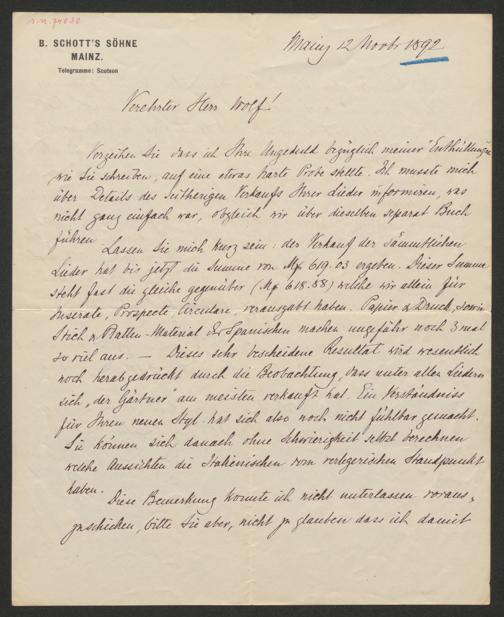 B. SCHOTT'S SÖHNE
MAINZ.
Telegramme: Scotson
Mainz 12 Novbr 1892
Verehrter Herr Wolf!
Verzeihen Sie dass ich Ihre Ungeduld bezüglich meiner "Enthüllungen
wie Sie schreiben, auf eine etwas harte Probe stellte. Ich musste mich
über Details des seitherigen Verkaufs Ihrer Lieder informiren, was
nicht ganz einfach war, obgleich wir über dieselben separat Buch
führen.
Lassen Sie mich kurz sein: der Verkauf der sämmtlichen
Lieder hat bis jetzt die Summe von Mk 619.03 ergeben. Dieser Summe
steht fast die gleiche gegenüber (Mk 618.88) welche wir allein für
Inserate, Prospecte, Circulare, verausgabt haben. Papier & Druck, sowie
Stich & Platten-Material der Spanischen machen ungefähr noch 3 mal
so viel aus. — Dieses sehr bescheidene Resultat wird wesentlich
noch herabgedrückt durch die Beobachtung, dass unter allen Liedern
sich "der Gärtner" am meisten verkauft hat. Ein Verständniss
für Ihren neuen Styl hat sich also noch nicht fühlbar gemacht.
Sie können sich danach ohne Schwierigkeit selbst berechnen
welche Aussichten die Italienischen vom verlegerischen Standpunkt
haben.
Diese Bemerkung konnte ich nicht unterlassen voraus-
zuschicken, bitte Sie aber, nicht zu glauben dass ich damit